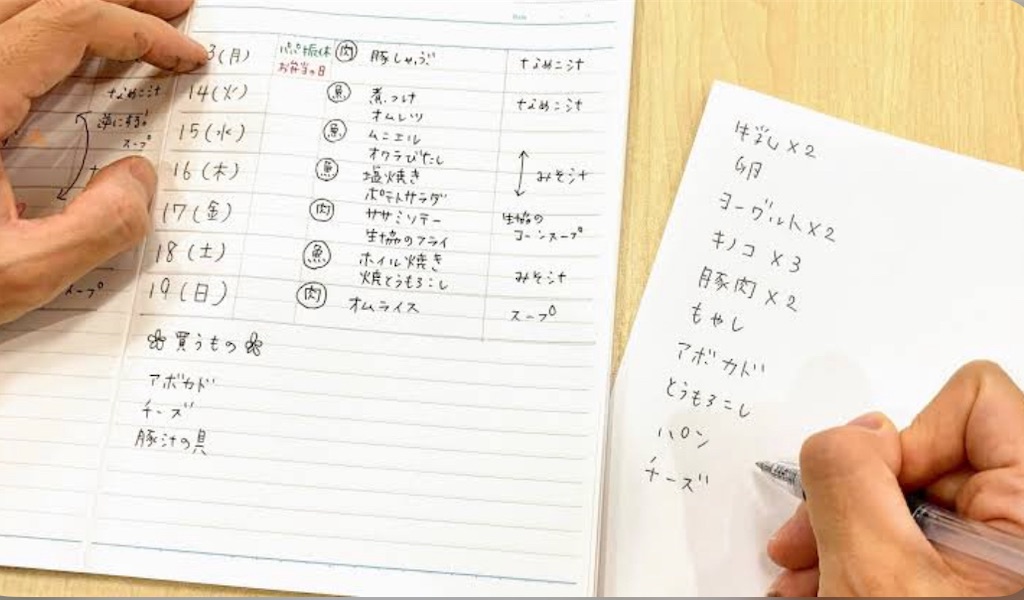 なめこ汁
逆にする!
スープ
スープ
3(月) パパ振休 肉 豚しゃぶ なめこ汁
お弁当の日
14(火) 魚 煮つけ なめこ汁
オムレツ
15(水) 魚 ムニエル
オクラびたし
16(木) 魚 塩焼き みそ汁
ポテトサラダ
17(金) 肉 ササミソテー 生協の
生協のフライ コーンスープ
18(土) 魚 ホイル焼き
焼とうもろこし みそ汁
19(日) 肉 オムライス スープ
買うもの
アボカド
チーズ
豚汁の具
牛乳×2
卵
ヨーグルト×2
キノコ×3
豚肉×2
もやし
アボカド
とうもろこし
パン
チーズ